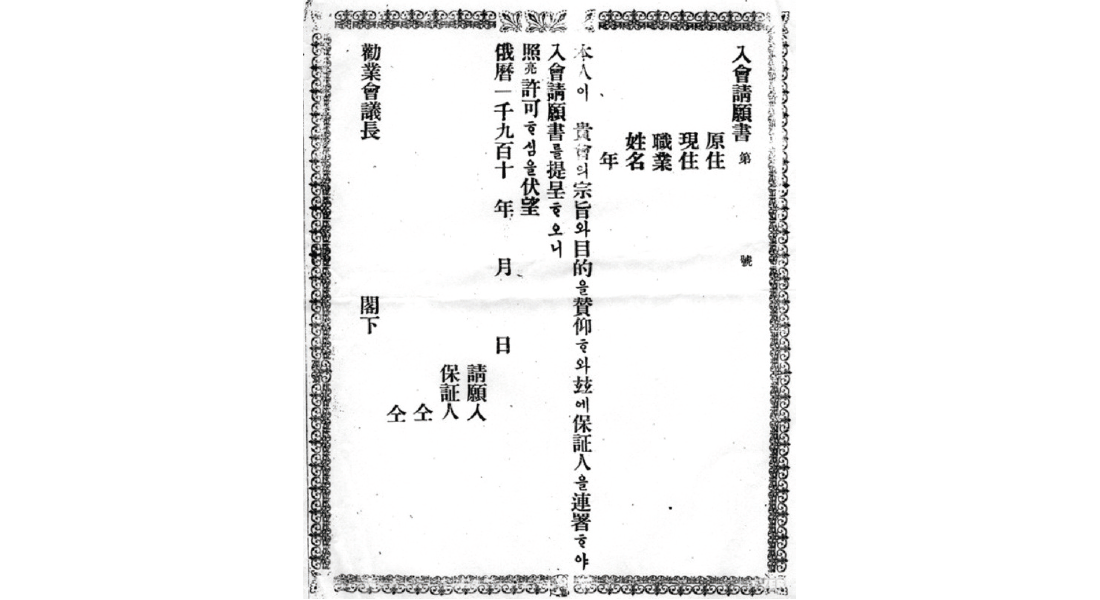 入會請願書 第 號
原住
現住
職業
姓名
年
本人이 貴會의宗旨와目的을賛仰ᄒᆞ와玆에保証人을連署ᄒᆞ야
入會請願書를提呈ᄒᆞ오니
照亮許可ᄒᆞ심을伏望
俄曆一千九百十 年 月 日
請願人
保証人
仝
仝
勸業會議長 閣下